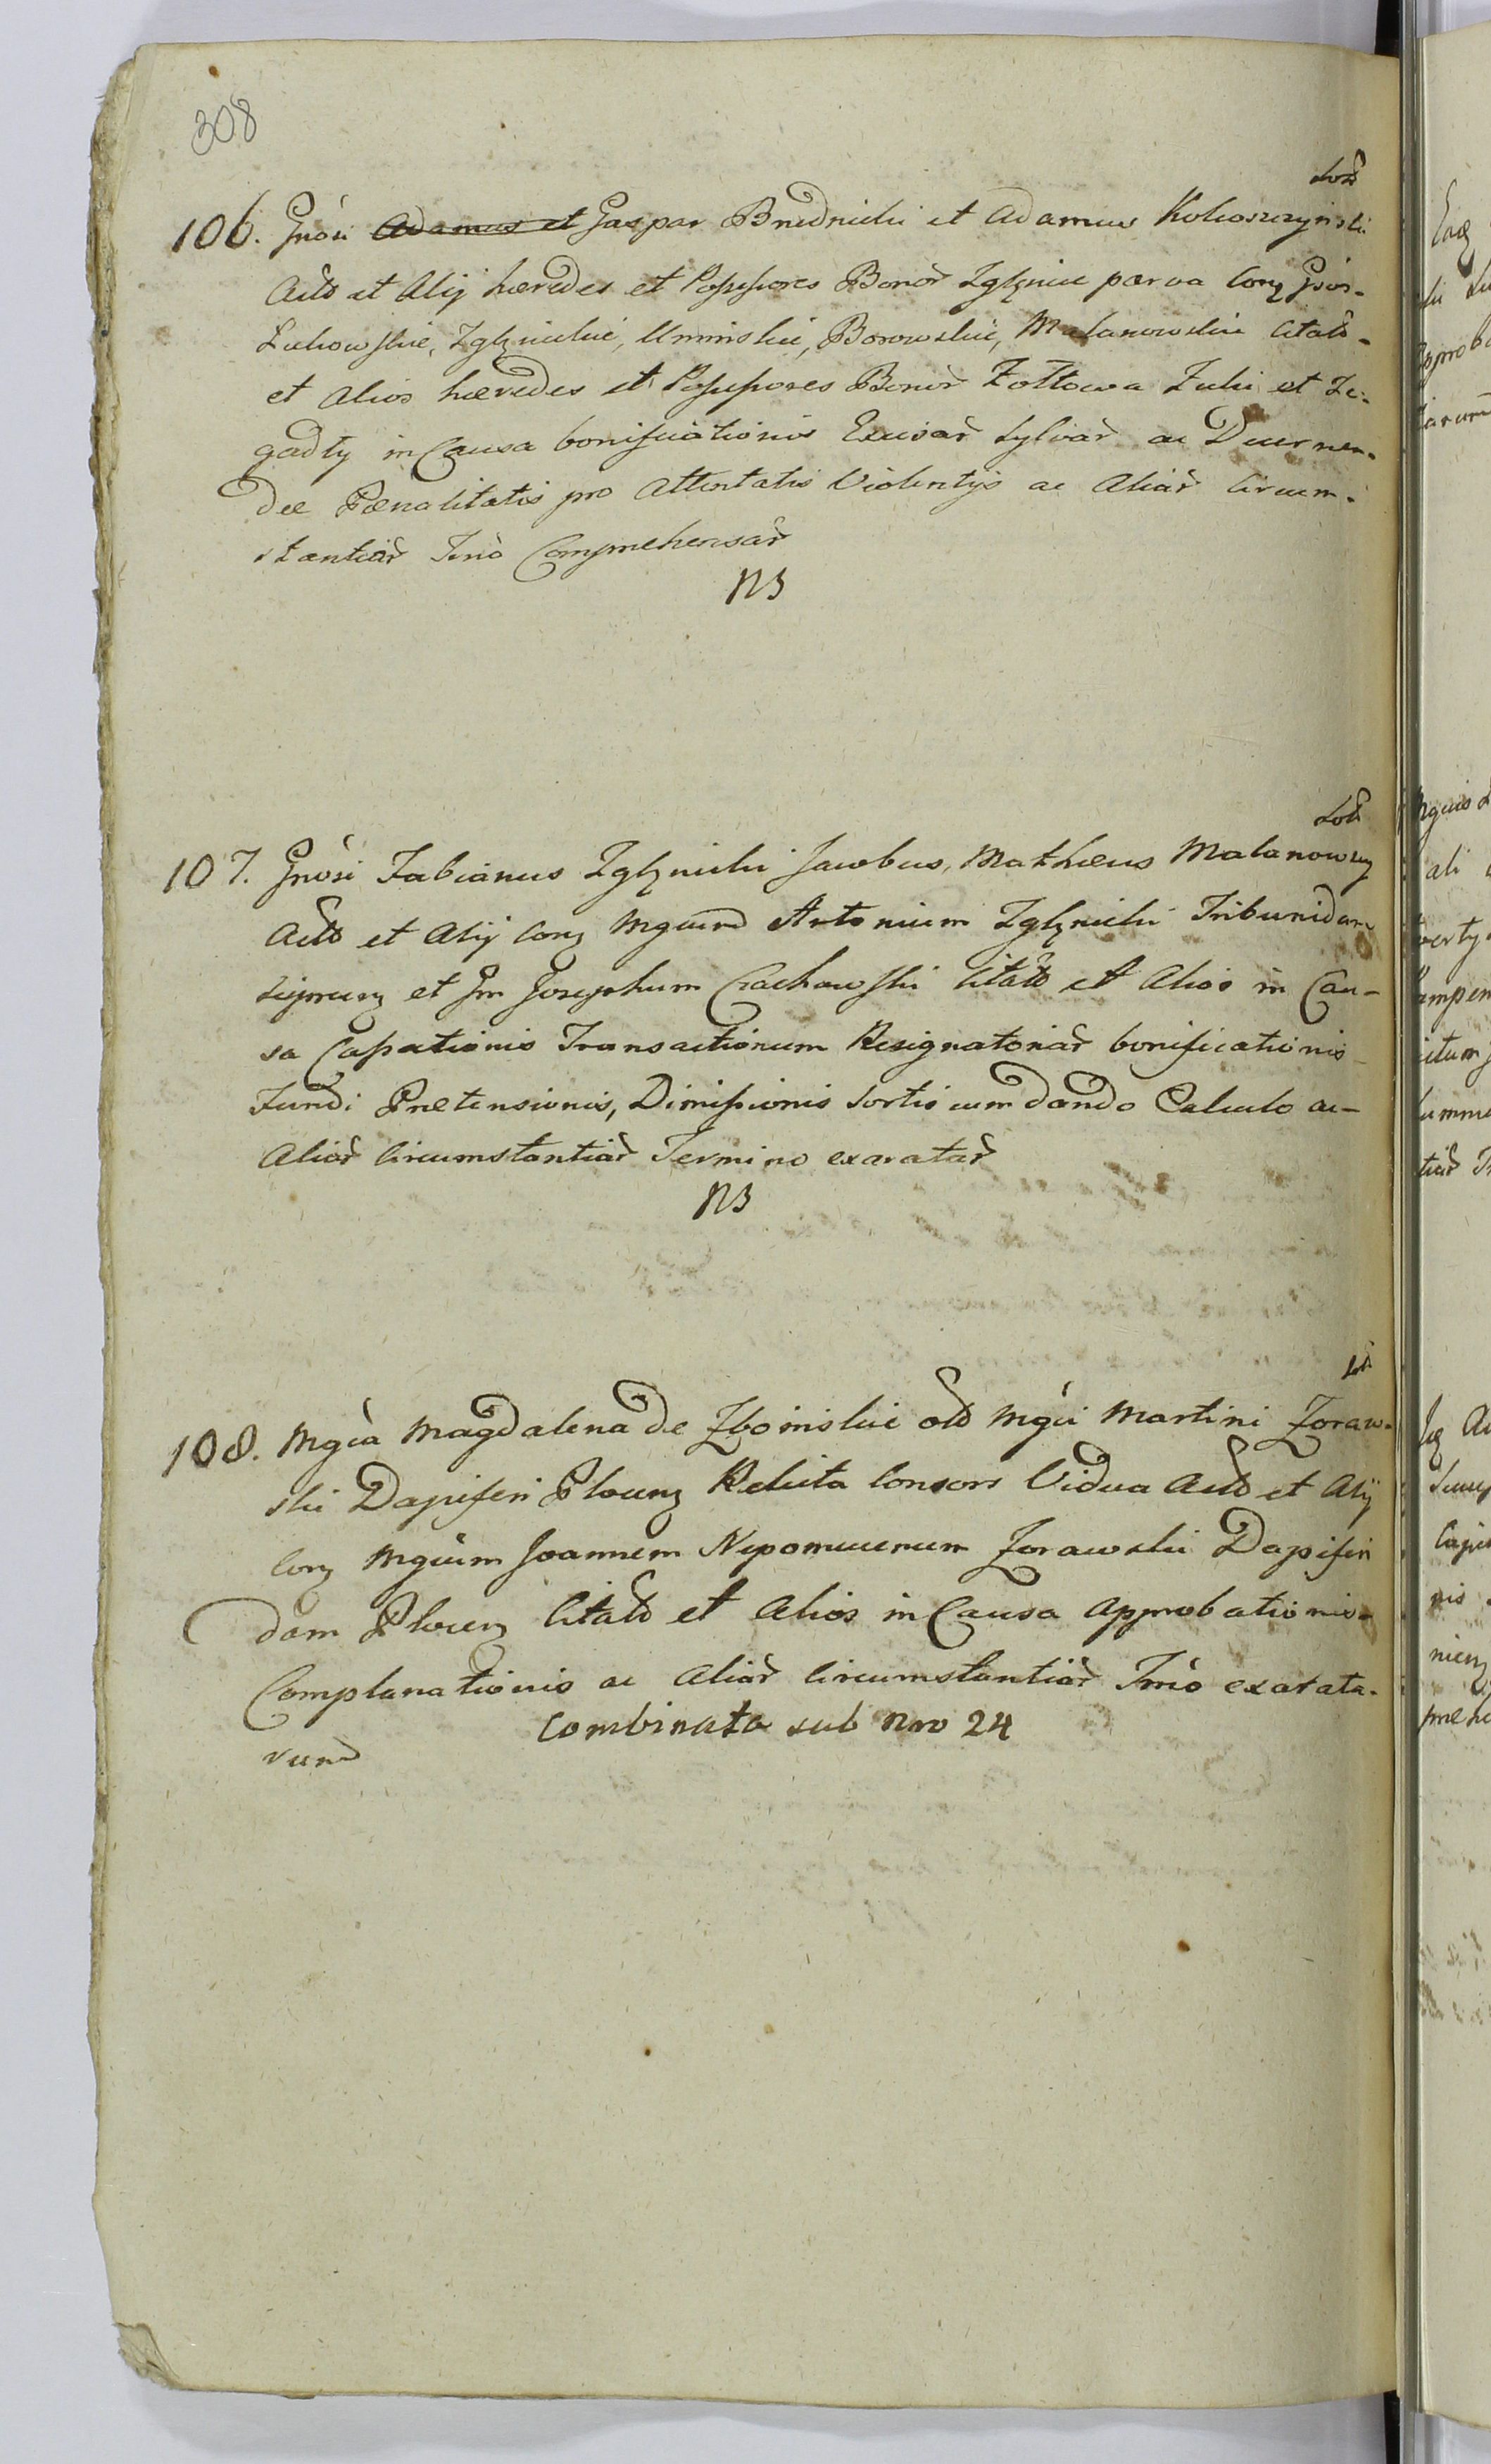 308
106. Gnosi Adamus et Gaspar Brudnicki et Adamus Kokoszczynski
Acto et Alij hæredes et Possessores Bonor Zglenice parva Conz Gnos-
Lukowskie, Zglenickie, Uminskie, Borowskie, Malanowskie Citato-
et Alios hæredes et Possessores Bonor Zoltowa Zuki et Ze-
gadly in Causa bonificationis Excisar Sylvar ac Decernen-
dæ Pœnalitatis pro Attentatis Violentijs ac Aliar Circum-
stantiar Tmò Comprehensar
NB
107. Gnosi Fabianus Zglenicki Jacobus, Mathæus Malanowscy
Acto et Alij Conz Mgcum Antonium Zglenicki Tribunidam
Siprcen et Gm Josephum Czachowski Citato et Alios in Cau-
sa Cassationis Transactionum Resignatoriar bonificationis
Fundi Prætensionis, Dimissionis Sortis cum dando Calculo ac-
Aliar Circumstantiar Termino exaratar
NB
108. Mgca Magdalena de Zboinskie olo Mgci Martini Zoraw-
ski Dapiferi Plocen Relicta Consors Vidua Acto et Alij
Conz Mgcum Joannem Nepomucenum Zorawski Dapiferi
dam Plocen Citato et Alios in Causa Approbationis-
Complanationis ac Aliar Circumstantiar Tmò exarata-
Combinata sub Nro 24
rum